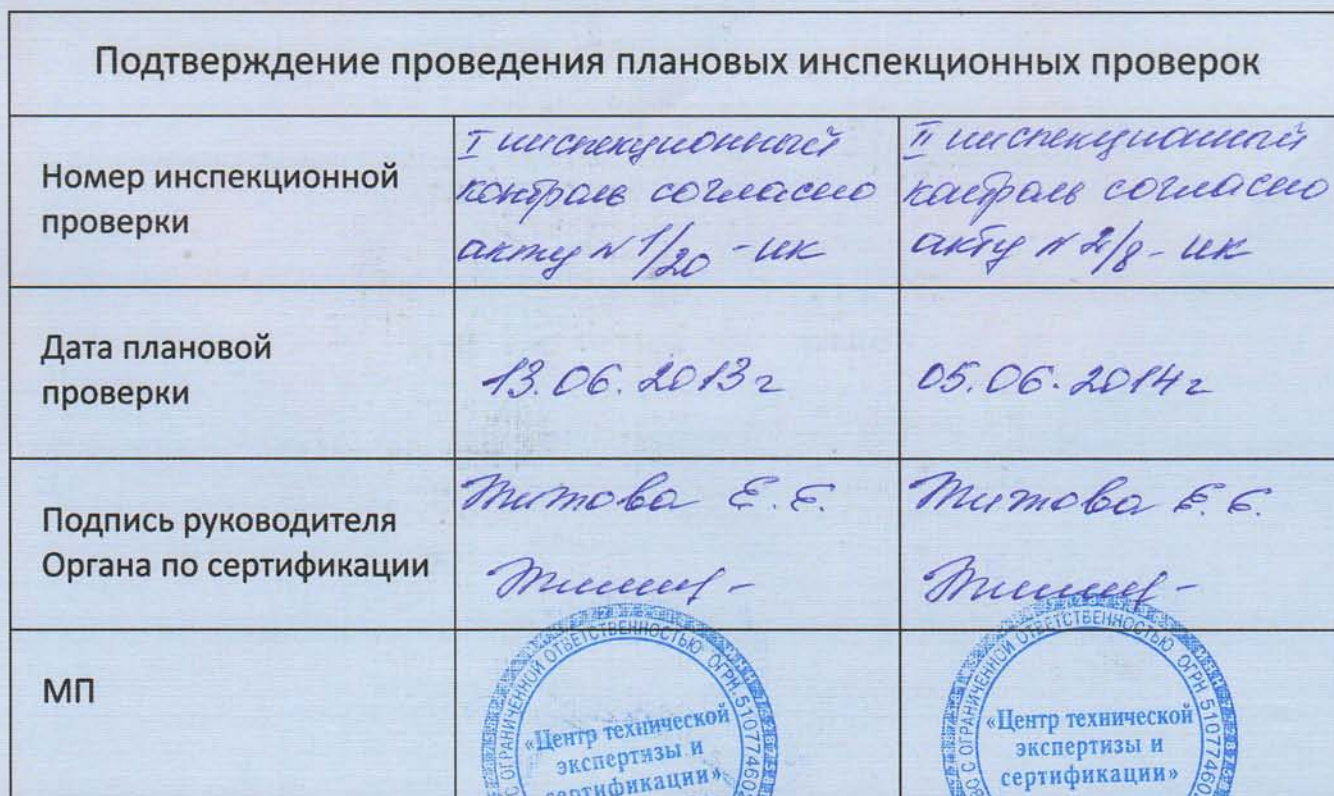 Подтверждение проведения плановых инспекционных проверок
Номер инспекционной
проверки
I инспекционный
контроль согласно
акту № 1/20 - ИК
II инспекционный
контроль согласно
акту № 2/8 - ИК
Дата плановой
проверки
13.06.2013г
05.06.2014г
Подпись руководителя
Органа по сертификации
Титова Е.Е.
Титова Е.Е.
МП
С ОГРАНИЧЕННОЙ ОТВЕТСТВЕННОСТЬЮ ОГРН 51077460
«Центр технической
экспертизы и
сертификации»
С ОГРАНИЧЕННОЙ ОТВЕТСТВЕННОСТЬЮ ОГРН 51077460
«Центр технической
экспертизы и
сертификации»